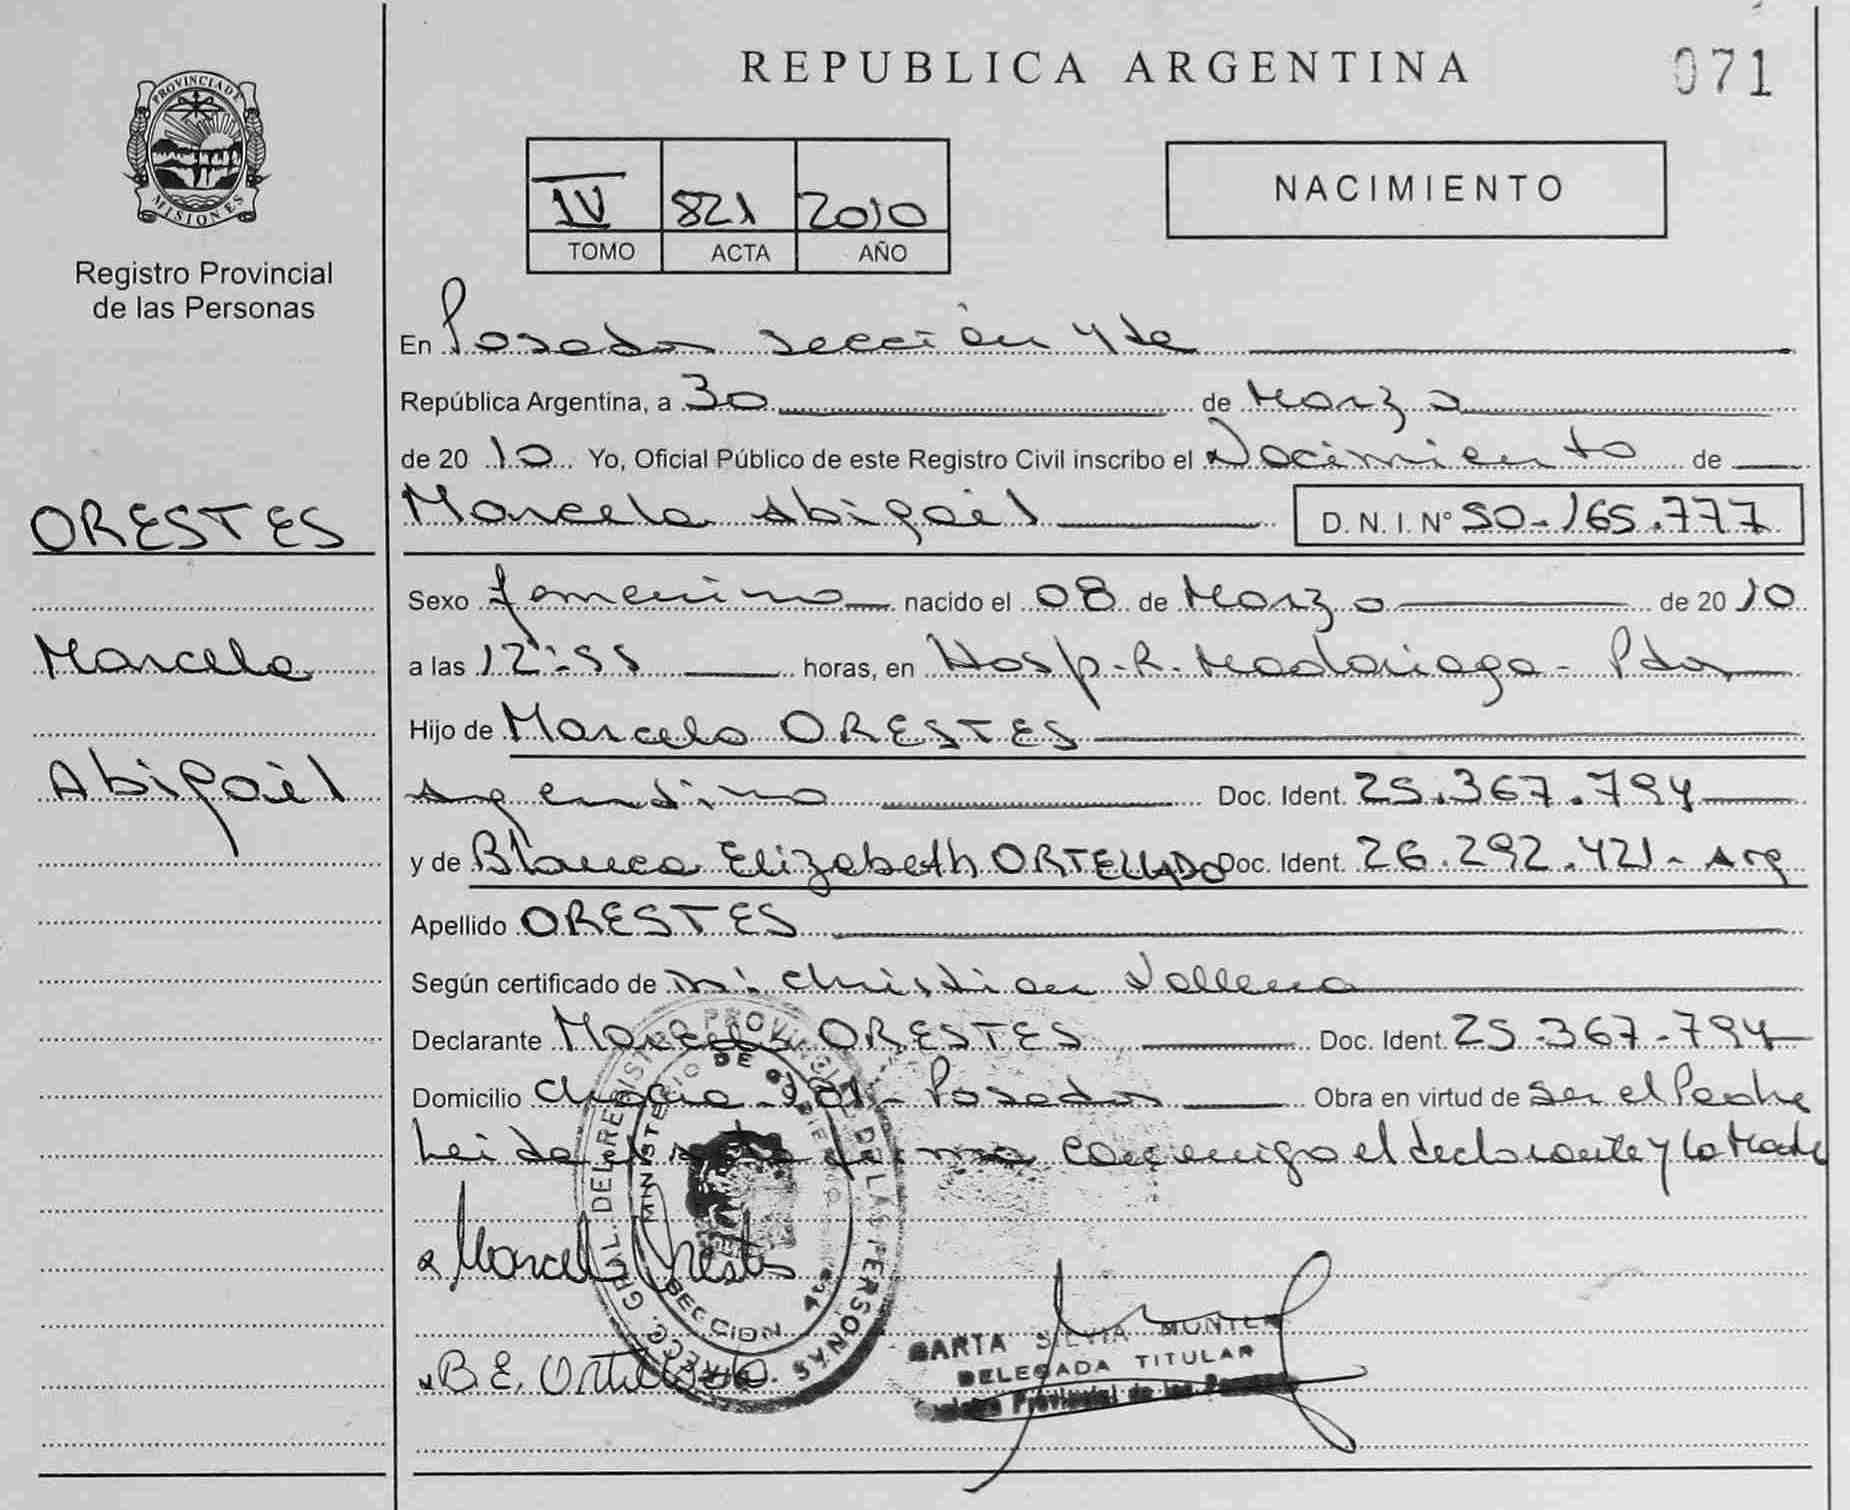 REPUBLICA ARGENTINA
071
PROVINCIA DE MISIONES
Registro Provincial
de las Personas
IV 821 2010
TOMO ACTA AÑO
NACIMIENTO
En Posadas sección 4ta
República Argentina, a 30 de Marzo
de 2010 Yo, Oficial Público de este Registro Civil inscribo el Nacimiento de
Marcela Abigaíl D. N. I. Nº 50-165.777
ORESTES
Marcela
Abigaíl
Sexo femenino nacido el 08 de Marzo de 2010
a las 12:55 horas, en Hosp. R. Madariaga - Pdas
Hijo de Marcelo ORESTES
Argentino Doc. Ident. 25.367.794
y de Blanca Elizabeth ORTELLADO Doc. Ident. 26.292.421 - Arg
Apellido ORESTES
Según certificado de Christian
Declarante Marcelo ORESTES Doc. Ident. 25.367.794
Domicilio Chacra - Posadas Obra en virtud de ser el Padre
Leída el acta firma conmigo el declarante y la Madre
Marcelo Orestes
B. E. Ortellado
DIREC. GRAL. DEL REGISTRO PROVINCIAL DE LAS PERSONAS
MINISTERIO DE GOBIERNO
SECCION 4ta
SILVIA
DELEGADA TITULAR
Registro Provincial de las Personas